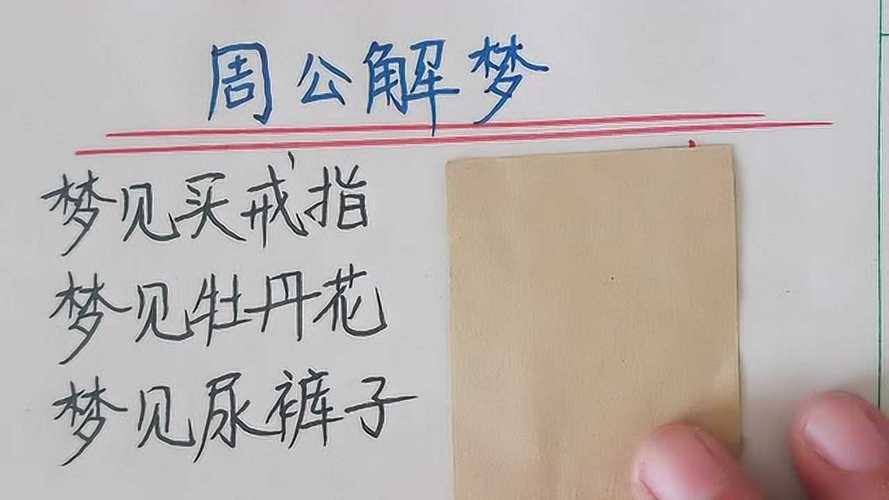 周公解梦
梦见买戒指
梦见牡丹花
梦见尿裤子